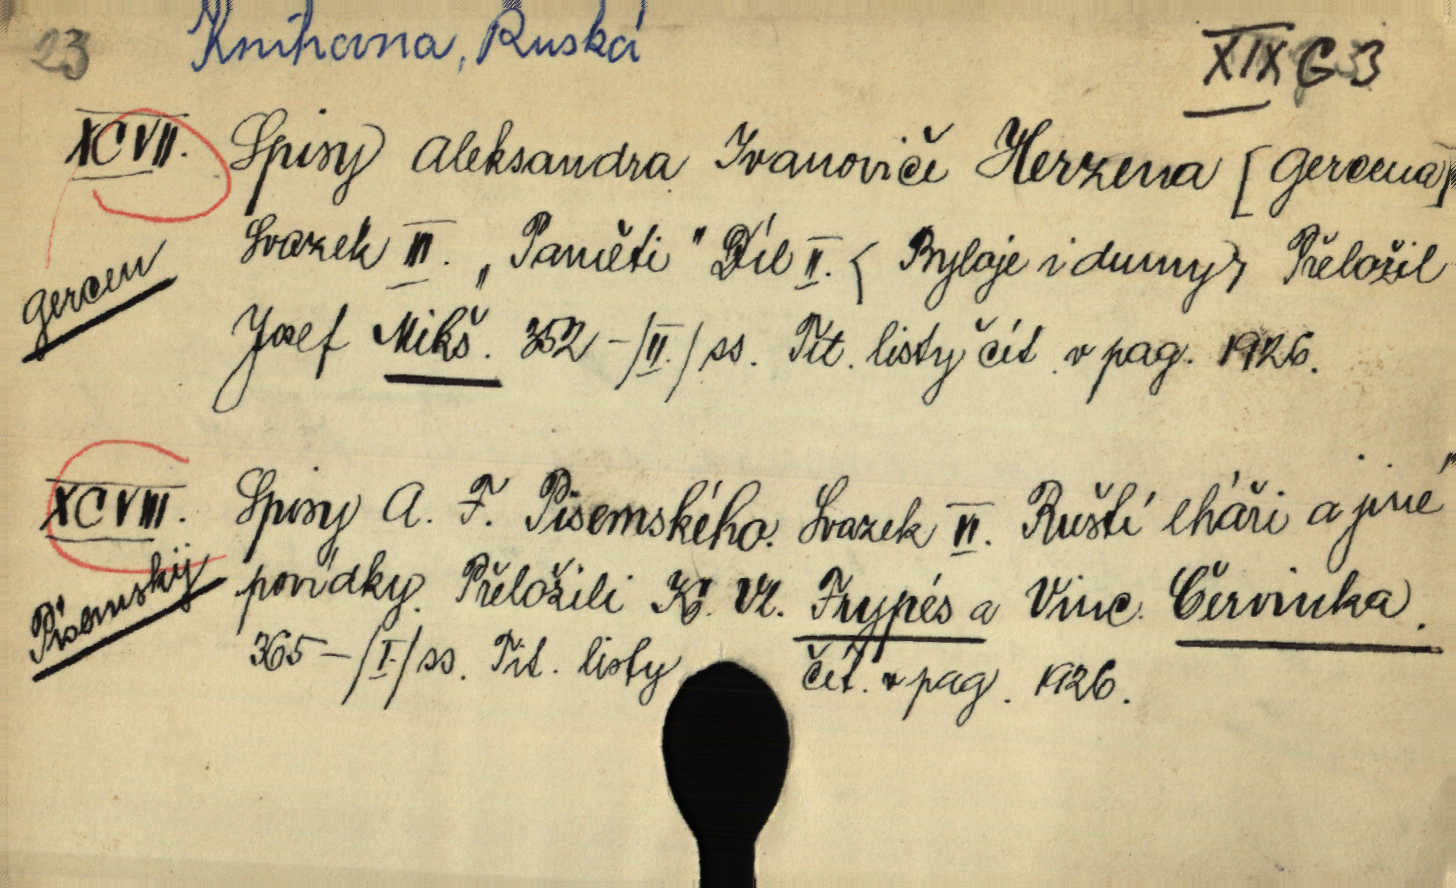 23 Knihovna, Ruská XIX G 3
XCVII. Spisy Aleksandra Ivanoviče Herzena [Gercena]
Svazek III. „Paměti" Díl II. (Byloje i dumy) Přeložil
Gercen
Josef Mikš. 352-/II./ ss. Tit. listy čít. v pag. 1926.
XCVIII. Spisy A. F. Pisemského. Svazek II. Ruští lháři a jiné
Pisemskij povídky. Přeložili K. Vl. Frypés a Vinc. Červinka.
365-/I./ ss. Tit. listy čít. v pag. 1926.